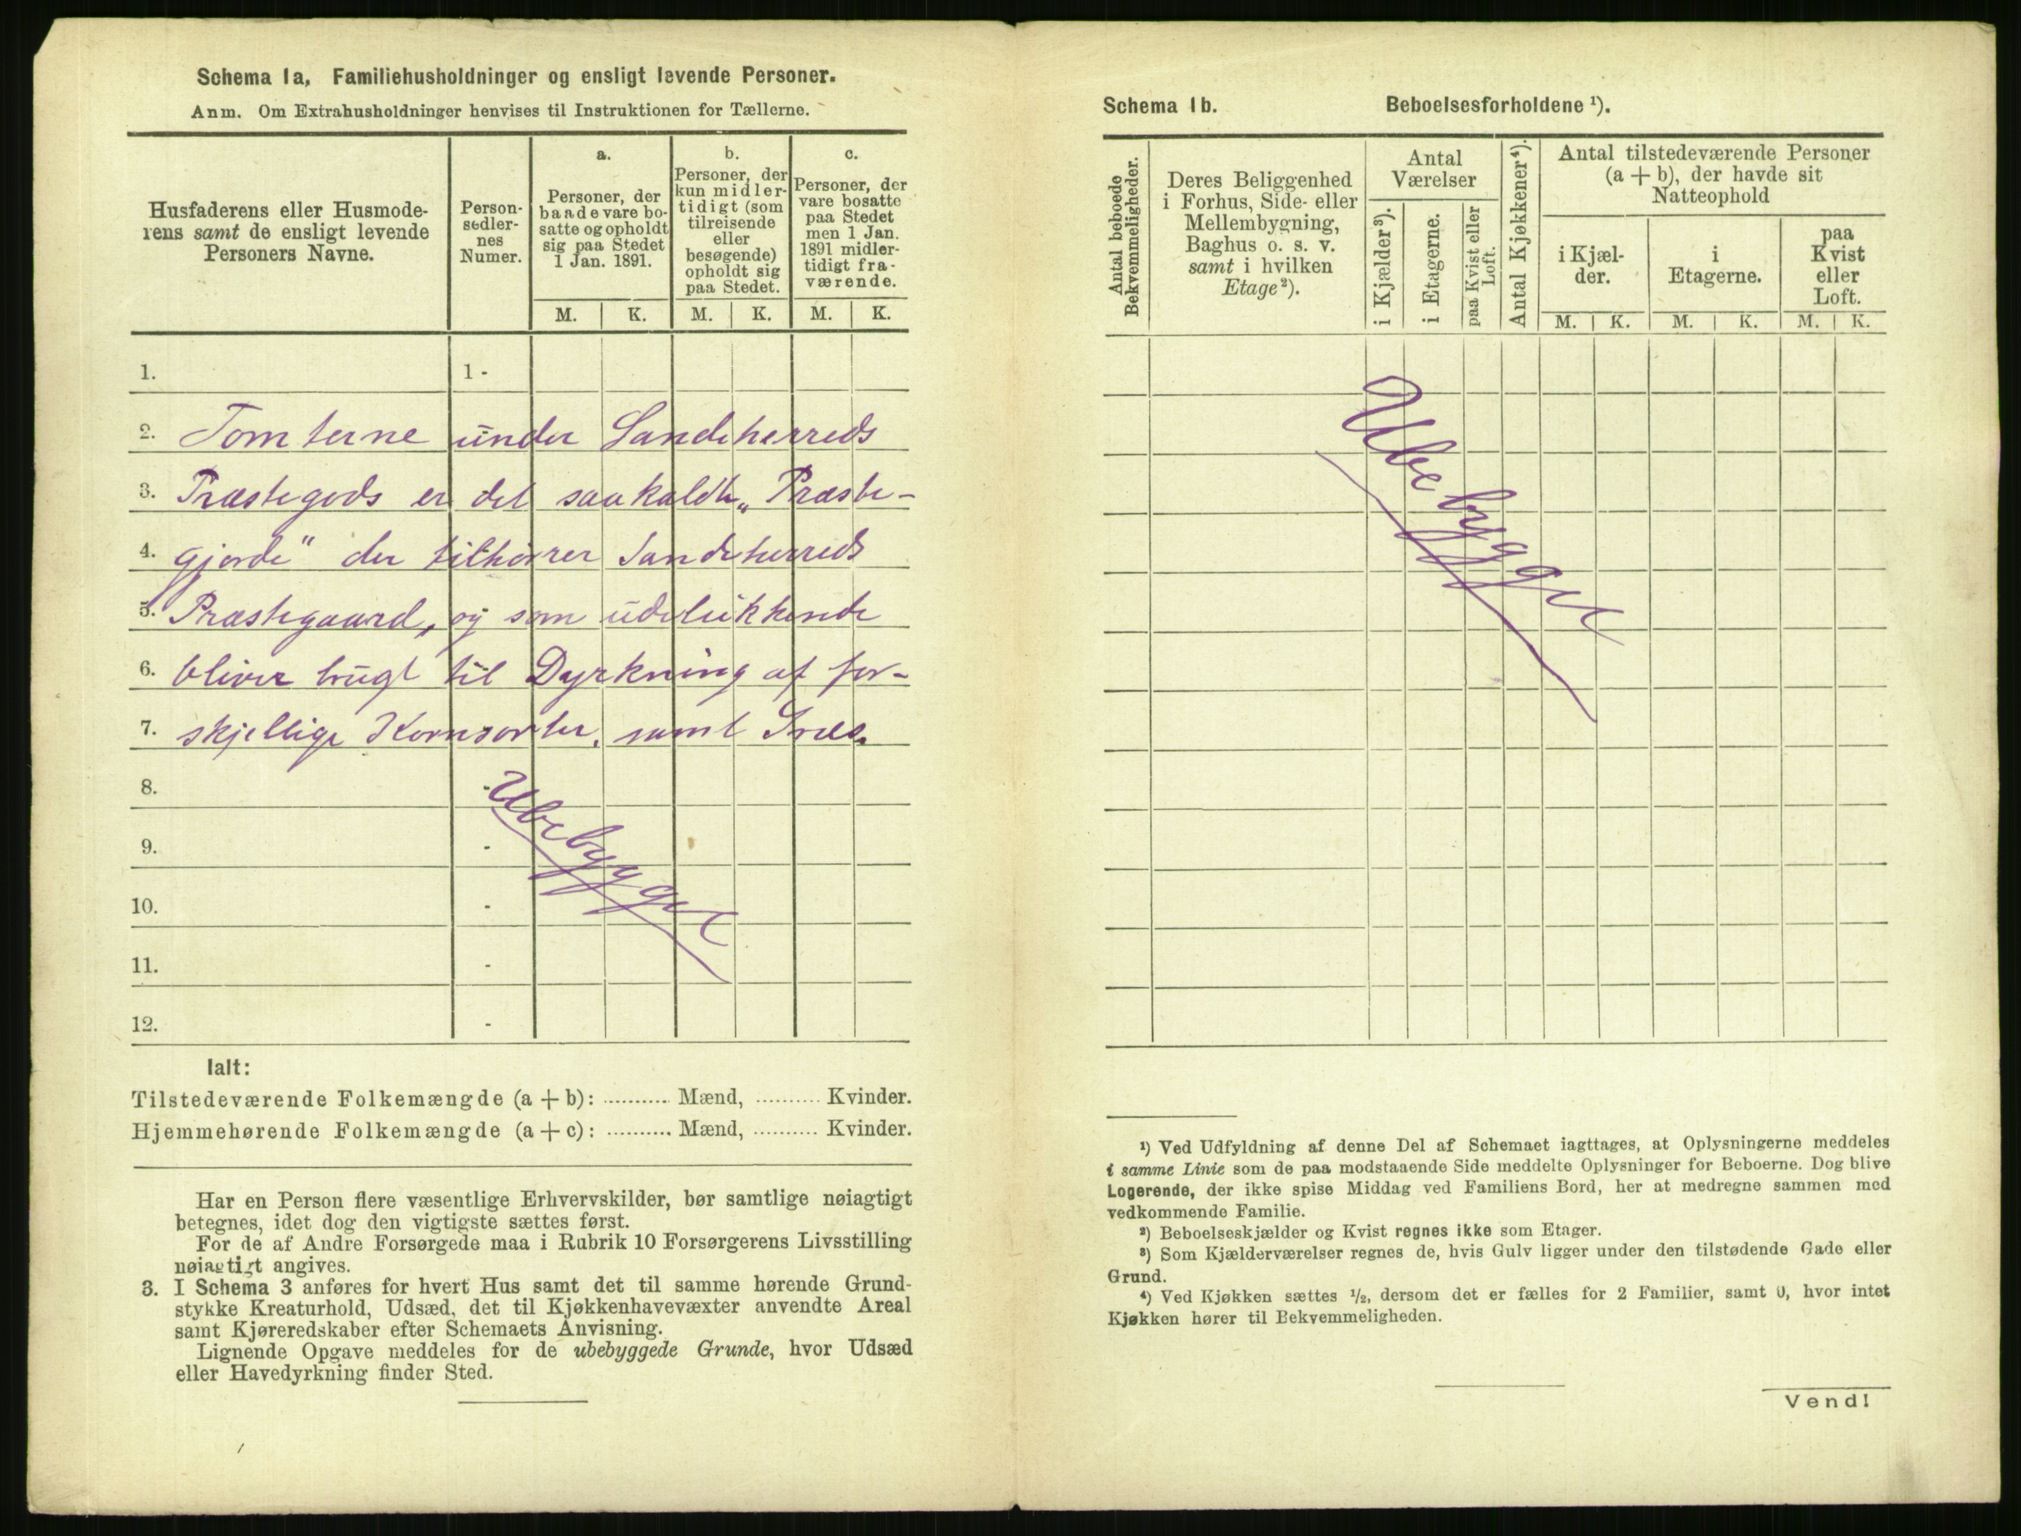 Schema 1a, Familiehusholdninger og ensligt levende Personer.
Anm. Om Extrahusholdninger henvises til Instruktionen for Tællerne.
Husfaderens eller Husmode-
rens samt de ensligt levende
Personers Navne.
Person-
sedler-
nes
Numer.
a.
Personer, der
baade vare bo-
satte og opholdt
sig paa Stedet
1 Jan. 1891.
b.
Personer, der
kun midler-
tidigt (som
tilreisende
eller
besøgende)
opholdt sig
paa Stedet.
c.
Personer, der
vare bosatte
paa Stedet
men 1 Jan.
1891 midler-
tidigt fra-
værende.
M. K. M. K. M. K.
1. 1 -
2. Tomterne under Sandeherreds
3. Præstegods er det saakaldte „Præste-
4. gjorde" der tilhører Sandeherreds
5. Præstegaard, og som udelukkende
6. bliver brugt til Dyrkning af for-
7. skjellige Kornsorter, samt Græs.
8. -
Ubebygget
9. -
10. -
11. -
12. -
Ialt:
Tilstedeværende Folkemængde (a + b): .......... Mænd, .......... Kvinder.
Hjemmehørende Folkemængde (a + c): .......... Mænd, .......... Kvinder.
Har en Person flere væsentlige Erhvervskilder, bør samtlige nøiagtigt
betegnes, idet dog den vigtigste sættes først.
For de af Andre Forsørgede maa i Rubrik 10 Forsørgerens Livsstilling
nøiagtigt angives.
3. I Schema 3 anføres for hvert Hus samt det til samme hørende Grund-
stykke Kreaturhold, Udsæd, det til Kjøkkenhavevæxter anvendte Areal
samt Kjøreredskaber efter Schemaets Anvisning.
Lignende Opgave meddeles for de ubebyggede Grunde, hvor Udsæd
eller Havedyrkning finder Sted.
Schema 1b. Beboelsesforholdene ¹).
Antal beboede
Bekvemmeligheder.
Deres Beliggenhed
i Forhus, Side- eller
Mellembygning,
Baghus o. s. v.
samt i hvilken
Etage²).
Antal
Værelser
i Kjælder³).
i Etagerne.
paa Kvist eller
Loft.
Antal Kjøkkener⁴).
Antal tilstedeværende Personer
(a + b), der havde sit
Natteophold
i Kjæl-
der.
i
Etagerne.
paa
Kvist
eller
Loft.
M. K. M. K. M. K.
Ubebygget
¹) Ved Udfyldning af denne Del af Schemaet iagttages, at Oplysningerne meddeles
i samme Linie som de paa modstaaende Side meddelte Oplysninger for Beboerne. Dog blive
Logerende, der ikke spise Middag ved Familiens Bord, her at medregne sammen med
vedkommende Familie.
²) Beboelseskjælder og Kvist regnes ikke som Etager.
³) Som Kjælderværelser regnes de, hvis Gulv ligger under den tilstødende Gade eller
Grund.
⁴) Ved Kjøkken sættes ¹/₂, dersom det er fælles for 2 Familier, samt 0, hvor intet
Kjøkken hører til Bekvemmeligheden.
Vend!